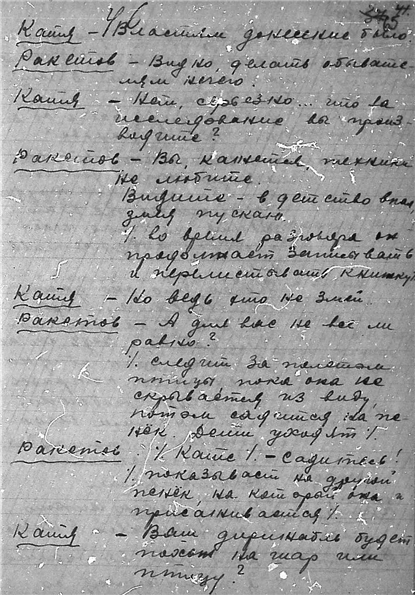 Катя – Властям донесение было
Ракетов – Видно, делать обывате-
лям нечего.
Катя – Нет, серьезно... что за
исследование вы произ-
водите?
Ракетов – Вы, кажется, техники
не любите.
Видите – в детство впал
змея пускаю.
/. во время разговора он
продолжает записывать
и перелистывать книжку
Катя – Но ведь это не змей.
Ракетов – А для вас не все ли
равно?
/. следит за полетом
птицы пока она не
скрывается из виду,
потом садится на пе-
нёк. Дети уходят /.
Ракетов /. Кате /. – Садитесь!
/. показывает на другой
пенёк, на который она и
присаживается /.
Катя – Ваш дирижабль будет
похож на шар или
птицу?